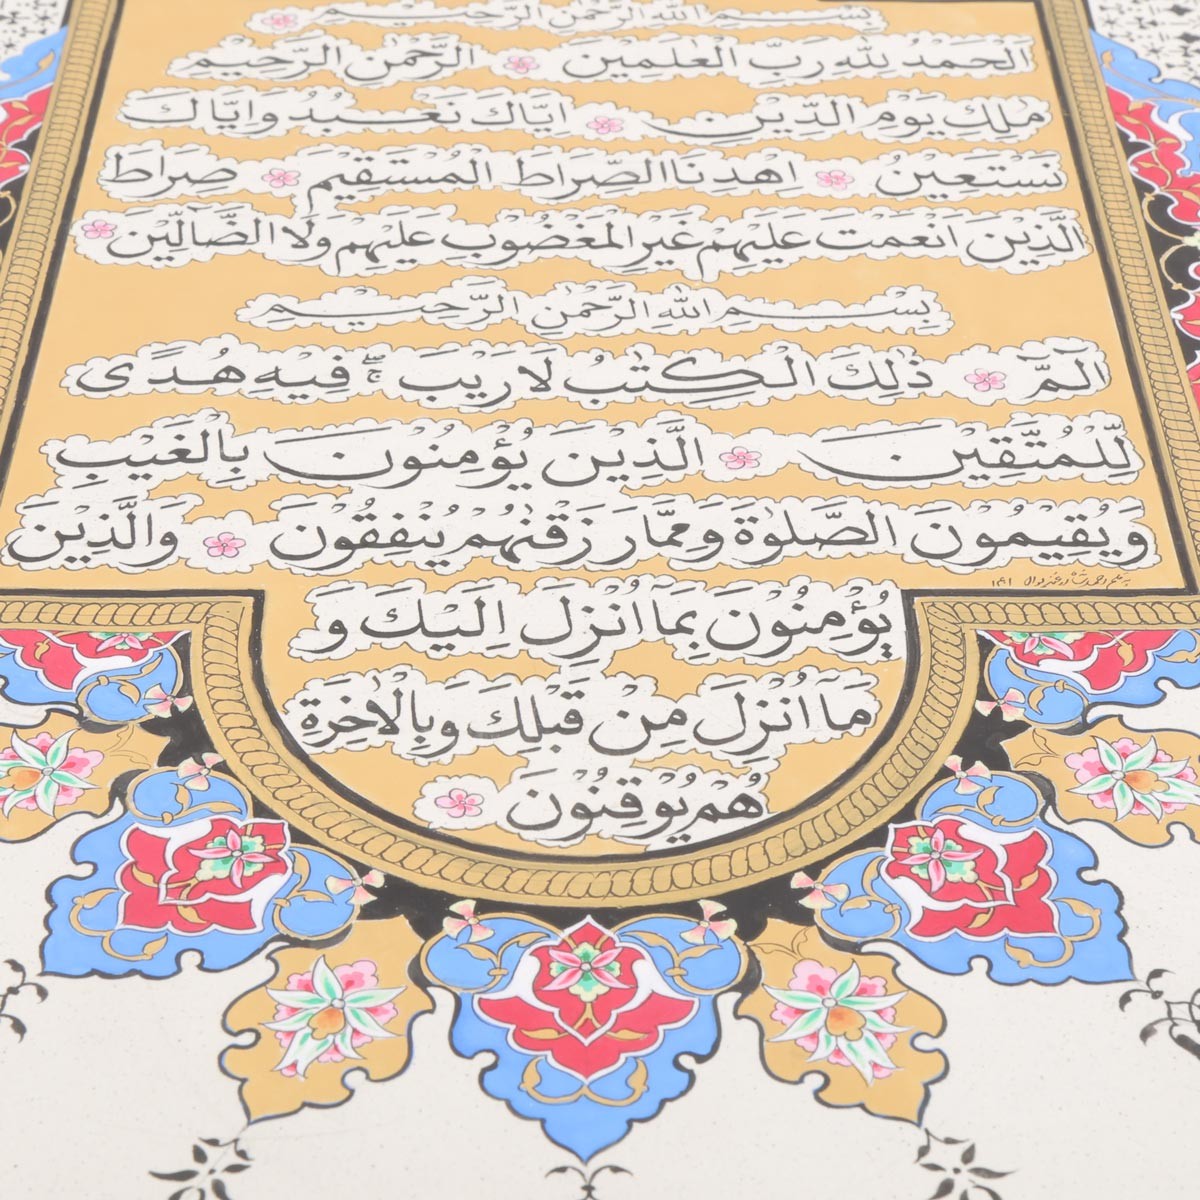 بِسْمِ اللهِ الرَّحْمٰنِ الرَّحِيْمِ
اَلْحَمْدُ لِلّٰهِ رَبِّ الْعٰلَمِيْنَ الرَّحْمٰنِ الرَّحِيْمِ
مٰلِكِ يَوْمِ الدِّيْنِ اِيَّاكَ نَعْبُدُ وَاِيَّاكَ
نَسْتَعِيْنُ اِهْدِنَا الصِّرَاطَ الْمُسْتَقِيْمَ صِرَاطَ
الَّذِيْنَ اَنْعَمْتَ عَلَيْهِمْ غَيْرِ الْمَغْضُوْبِ عَلَيْهِمْ وَلَا الضَّآلِّيْنَ
بِسْمِ اللهِ الرَّحْمٰنِ الرَّحِيْمِ
الٓمّٓ ذٰلِكَ الْكِتٰبُ لَا رَيْبَ ۛۖۚ فِيْهِ هُدًى
لِّلْمُتَّقِيْنَ الَّذِيْنَ يُؤْمِنُوْنَ بِالْغَيْبِ
وَيُقِيْمُوْنَ الصَّلٰوةَ وَمِمَّا رَزَقْنٰهُمْ يُنْفِقُوْنَ وَالَّذِيْنَ
يُؤْمِنُوْنَ بِمَآ اُنْزِلَ اِلَيْكَ وَ
مَآ اُنْزِلَ مِنْ قَبْلِكَ وَبِالْاٰخِرَةِ
هُمْ يُوْقِنُوْنَ